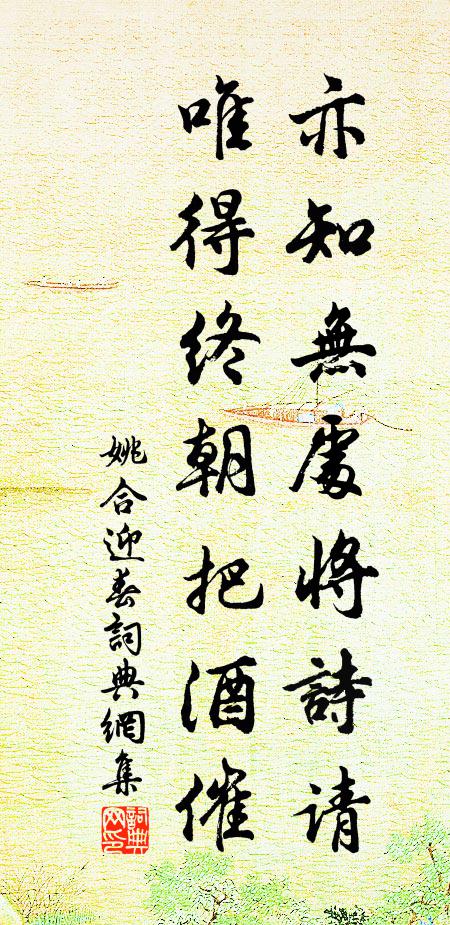 亦知無處將詩请
唯得終朝把酒催
姚合迎春詞典網集
詞典网印